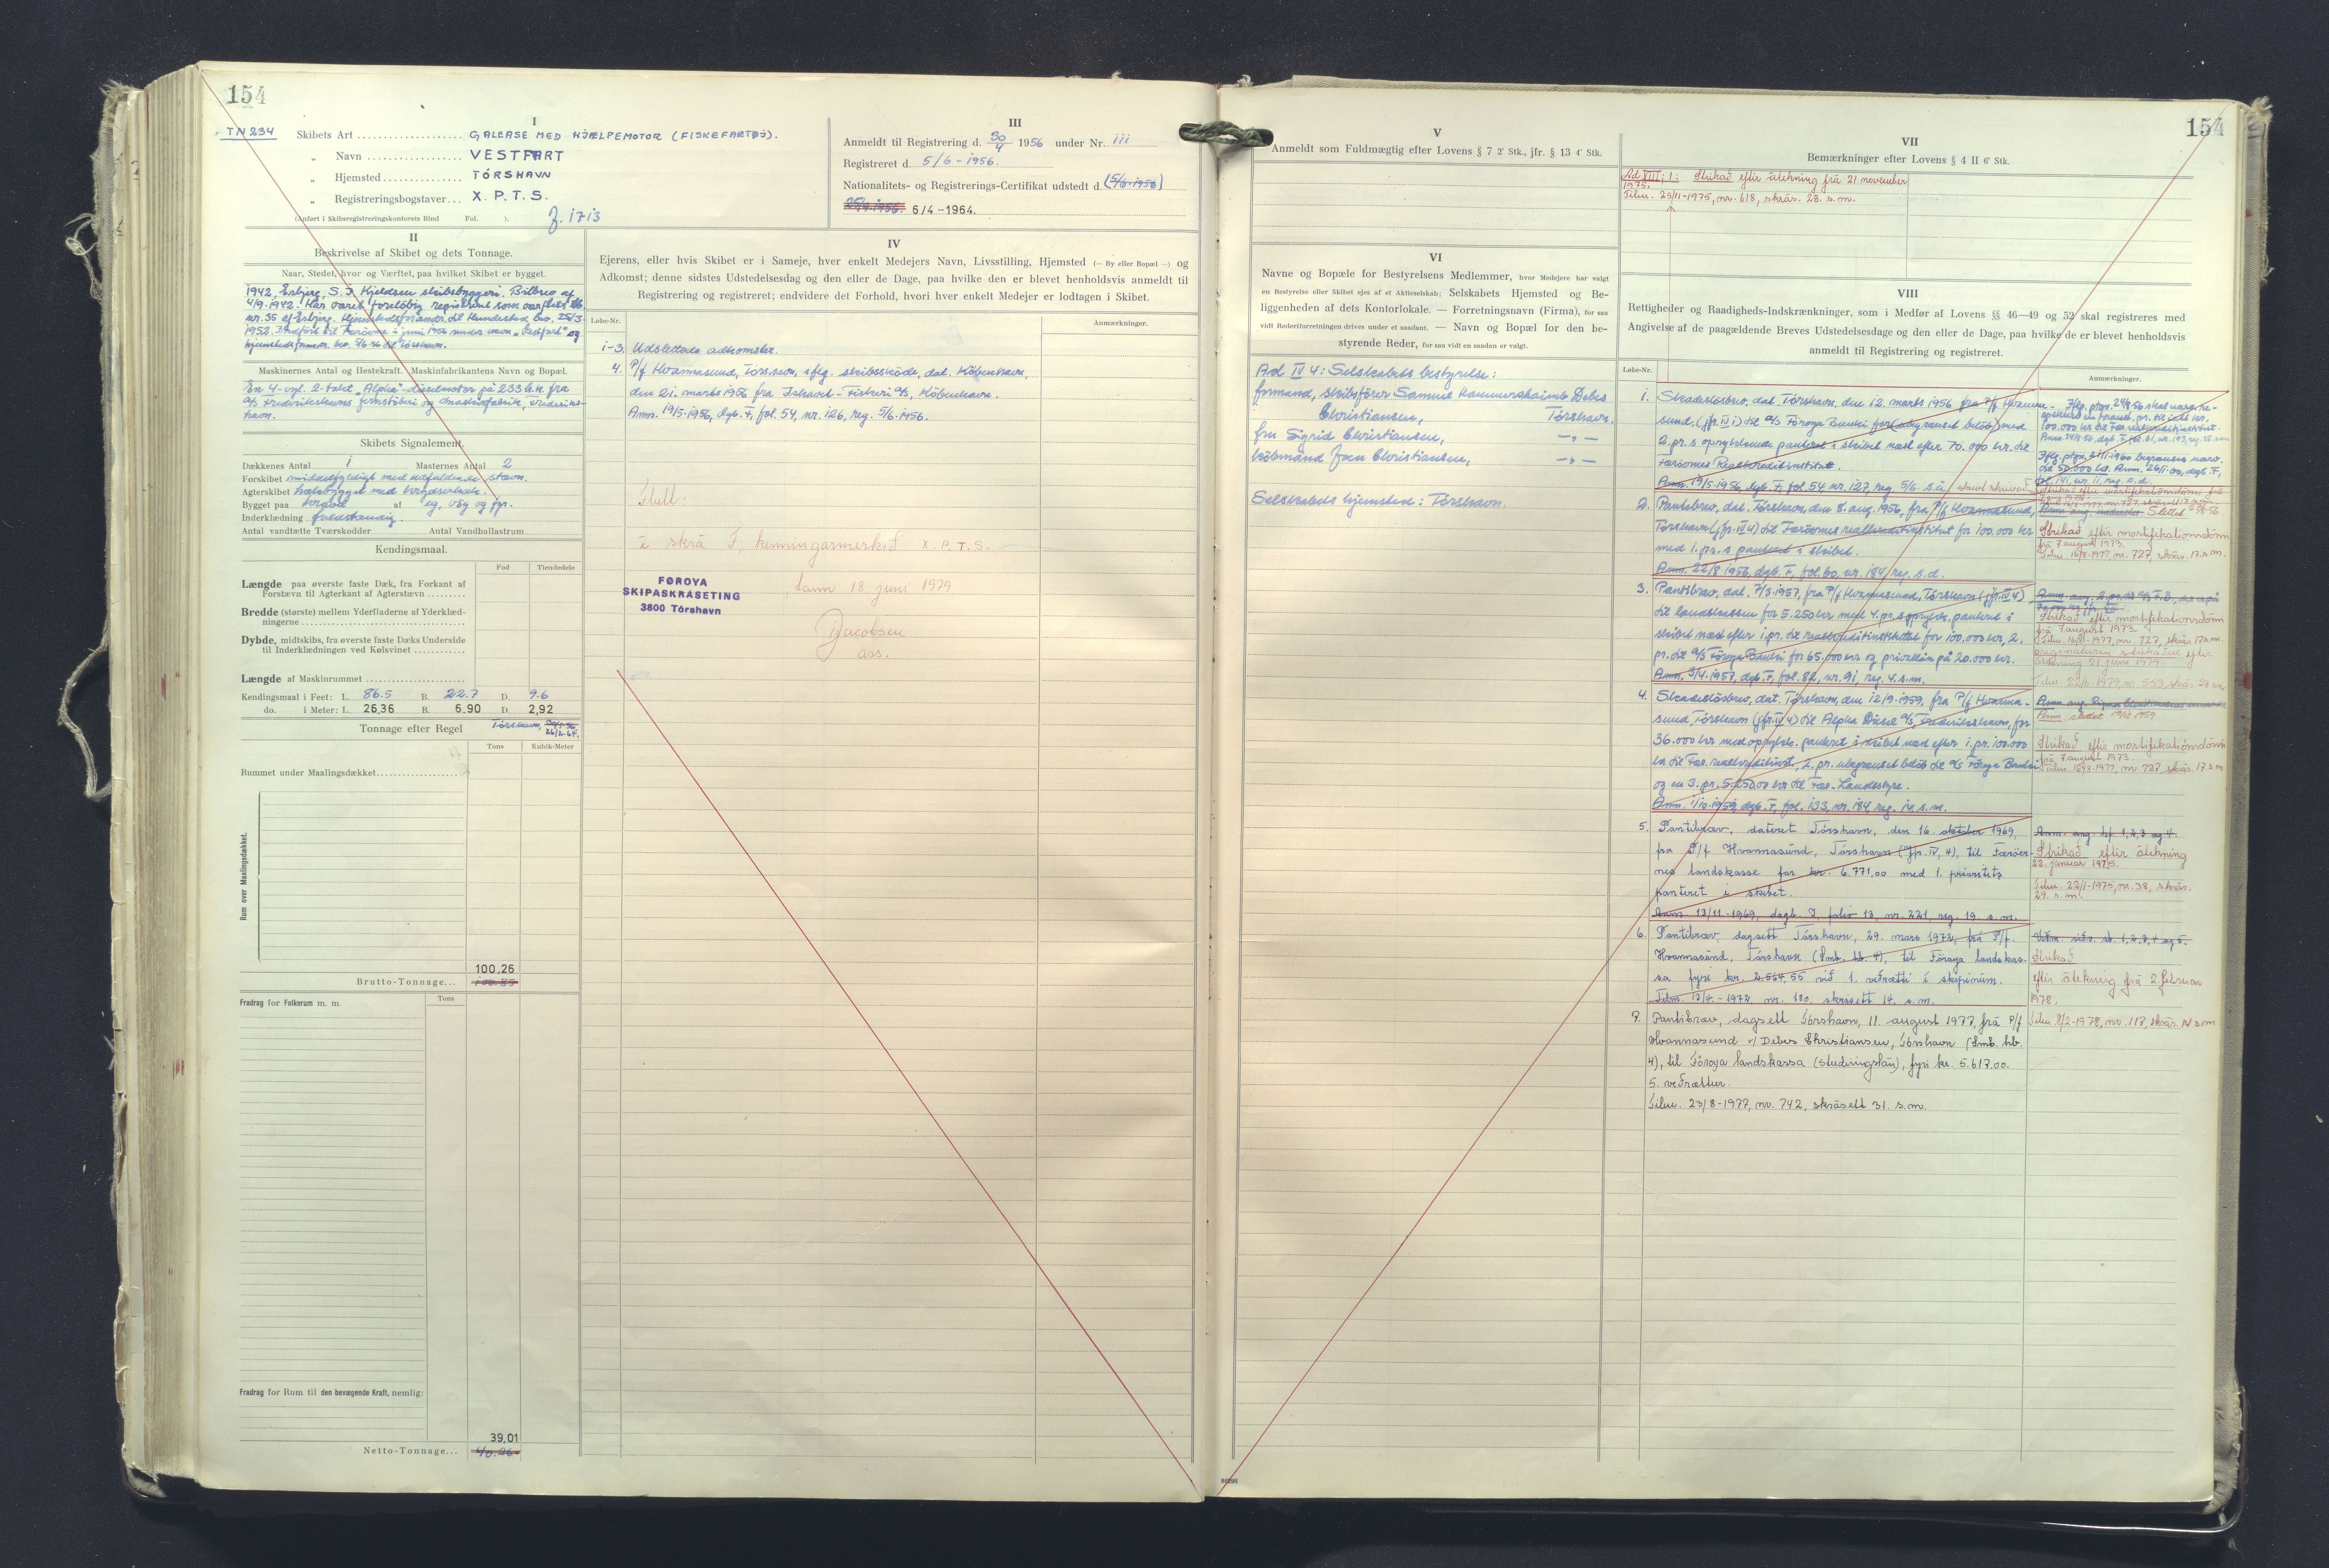 154
TN 234
I
Skibets Art GALEASE MED HJÆLPEMOTOR (FISKEFARTØJ).
„ Navn VESTFART
„ Hjemsted TÓRSHAVN
„ Registreringsbogstaver X. P. T. S.
(Anført i Skibsregistreringskontorets Bind Fol. ).
III
Anmeldt til Registrering d. 30/4 1956 under Nr. 111
Registreret d. 5/6 - 1956.
Nationalitets- og Registrerings-Certifikat udstedt d. (5/6-1956)
25/9.1956. 6/4-1964.
II
Beskrivelse af Skibet og dets Tonnage.
Naar, Stedet, hvor og Værftet, paa hvilket Skibet er bygget.
1942, Esbjerg, S. J. Kjeldsen skibsbyggeri. Bilbrev af
4/9.1942. Har været foreløbig registreret som
nr. 35 af Esbjerg. til Hundested
1952. til Færøerne i juni 1956 under navn „Vestfart" og
5/6-56 til Tórshavn.
Maskinernes Antal og Hestekraft. Maskinfabrikantens Navn og Bopæl.
En 4-cyl. 2-takt „Alpha"-dieselmotor på 233 h.k. fra
a/s Frederikshavns jernstøberi og maskinfabrik, Frederiks-
havn.
Skibets Signalement.
Dækkenes Antal 1 Masternes Antal 2
Forskibet middelfyldigt med udfaldende stævn.
Agterskibet med krydserhæk.
Bygget paa kravel af eg, bøg og fyr.
Inderklædning fuldstændig.
Antal vandtætte Tværskodder Antal Vandballastrum
Kendingsmaal.
Fod Tiendedele
Længde paa øverste faste Dæk, fra Forkant af
Forstævn til Agterkant af Agterstævn
Bredde (største) mellem Yderfladerne af Yderklæd-
ningerne
Dybde, midtskibs, fra øverste faste Dæks Underside
til Inderklædningen ved Kølsvinet
Længde af Maskinrummet
Kendingsmaal i Feet: L. 86.5 B. 22.7 D. 9.6
do. i Meter: L. 26,36 B. 6,90 D. 2,92
Tonnage efter Regel Tórshavn,
26/2-64.
Tons Kubik-Meter
Rummet under Maalingsdækket
Rum over Maalingsdækket.
100.26
Brutto-Tonnage... 100.85
Fradrag for Folkerum m. m. Tons
Fradrag for Rum til den bevægende Kraft, nemlig:
39,01
Netto-Tonnage... 40.26
IV
Ejerens, eller hvis Skibet er i Sameje, hver enkelt Medejers Navn, Livsstilling, Hjemsted (— By eller Bopæl —) og
Adkomst; denne sidstes Udstedelsesdag og den eller de Dage, paa hvilke den er blevet henholdsvis anmeldt til
Registrering og registreret; endvidere det Forhold, hvori hver enkelt Medejer er lodtagen i Skibet.
Løbe-Nr. Anmærkninger.
1-3. Udslettede adkomster.
4. P/f Hvannasund, Tórshavn, iflg. skibsskøde, dat. København,
den 21. marts 1956 fra Ishavet-Fiskeri a/s, København.
Anm. 19/5-1956, dgb. F, fol. 54, nr. 126, reg. 5/6-1956.
i skrá F, kenningarmerkið X. P. T. S.
FØROYA
SKIPASKRÁSETING
3800 Tórshavn
, tann 18. juni 1979
Jacobsen
ass.
154
V
Anmeldt som Fuldmægtig efter Lovens § 7 2' Stk., jfr. § 13 4' Stk.
VI
Navne og Bopæle for Bestyrelsens Medlemmer, hvor Medejere har valgt
en Bestyrelse eller Skibet ejes af et Aktieselskab; Selskabets Hjemsted og Be-
liggenheden af dets Kontorlokale. — Forretningsnavn (Firma), for saa
vidt Rederiforretningen drives under et saadant. — Navn og Bopæl for den be-
styrende Reder, for saa vidt en saadan er valgt.
Ad IV 4: Selskabets bestyrelse:
formand, skibsfører Samuel Debes
Christiansen, Tórshavn.
fru Sigrid Christiansen, —„—
købmand Christiansen, —„—
Selskabets hjemsted: Tórshavn.
VII
Bemærkninger efter Lovens § 4 II 6' Stk.
Ad VIII; 1: Strikað eftir átekning frá 21. november
1975.
Tilm. 25/11-1975, nr. 618, skrás. 28. s.m.
VIII
Rettigheder og Raadigheds-Indskrænkninger, som i Medfør af Lovens §§ 46—49 og 52 skal registreres med
Angivelse af de paagældende Breves Udstedelsesdage og den eller de Dage, paa hvilke de er blevet henholdsvis
anmeldt til Registrering og registreret.
Løbe-Nr. Anmærkninger.
1. Skadesløsbrev, dat. Tórshavn, den 12. marts 1956 fra P/f Hvanna-
sund, (jfr. IV 1) til a/s Føroya Banki for (ubegrænset beløb) med
2. pr. s. oprykkende panteret i skibet næst efter 70.000 kr. til
Færøernes Realkreditinstitut.
Anm. 19/5-1956, dgb. F, fol. 54, nr. 127, reg. 5/6. s.å.
2. Pantebrev, dat. Tórshavn, den 8. aug. 1956, fra P/f Hvannasund,
Tórshavn (jfr. IV 4) til Færøernes realkreditinstitut for 100.000 kr
med 1. pr. s panteret i skibet.
Anm. 22/8.1956, dgb. F, fol. 60, nr. 184, reg. s.d.
Strikað eftir mortifikationsdómi
frá 7. august 1973.
Tilm. 16/8-1977, nr. 727, skrás. 17. s.m.
3. Pantebrev, dat. 7/3.1957, fra P/f Hvannasund, Tórshavn (jfr. IV 4)
til landskassen for 5.250 kr med 4. pr. s oprykk. panteret i
skibet næst efter 1. pr. til realkreditinstituttet for 100.000 kr, 2.
pr. til a/s Føroya Banki for 65.000 kr og privatlån på 20.000 kr.
Anm. 3/4.1957, dgb. F, fol. 82, nr. 91, reg. 4. s.m.
Strikað eftir mortifikationsdómi
frá 7. august 1973
Tilm. 16/8-1977, nr. 727, skrás. 17. s.m.
4. Skadesløsbrev, dat. Tórshavn, den 12/9.1959, fra P/f Hvanna-
sund, Tórshavn (jfr. IV 4) til Alpha Diesel a/s Frederikshavn, for
36.000 kr med oprykk. panteret i skibet næst efter 1. pr. 100.000
kr til Fær. realkreditinst., 2. pr. ubegrænset beløb til a/s Føroya Banki
og en 3. pr. 5.250.00 kr til Fær. Landsstyre.
Anm. 1/10.1959, dgb. F, fol. 133, nr. 184, reg. 14. s.m.
Strikað eftir mortifikationsdómi
frá 7. august 1973.
Tilm. 16/8-1977, nr. 727, skrás. 17. s.m.
5. Pantibræv, dateret Tórshavn, den 16. oktober 1969,
fra P/f Hvannasund, Tórshavn (jfr. IV, 4), til Færøer-
nes landskasse for kr. 6.771,00 med 1. prioritets
panteret i skibet.
Anm. 13/11-1969, dagb. I, folio 13, nr. 221, reg. 19. s.m.
Anm. ang. hf. 1, 2, 3 og 4.
Strikað eftir átekning
22. januar 1975.
Tilm. 22/1-1975, nr. 38, skrás.
29. s.m.
6. Pantibræv, dagsett Tórshavn, 29. mars 1972, frá P/f.
Hvannasund, Tórshavn (Smb. hb. 4), til Føroya landskas-
sa fyri kr. 2.567,55 við 1. veðrætti í skipinum.
Tilm. 13/4-1972, nr. 180, skrásett 14. s.m.
Strikað
eftir átekning frá 2. februar
1978.
Tilm. 8/2-1978, nr. 117, skrás. 14 s.m
7. Pantibræv, dagsett Tórshavn, 11. august 1977, frá P/f
Hvannasund v/ Debes Christiansen, Tórshavn (Smb. hb.
4), til Føroya landskassa (studningslán), fyri kr. 5.617.00.
5. veðrættur.
Tilm. 23/8-1977, nr. 742, skrásett 31. s.m.